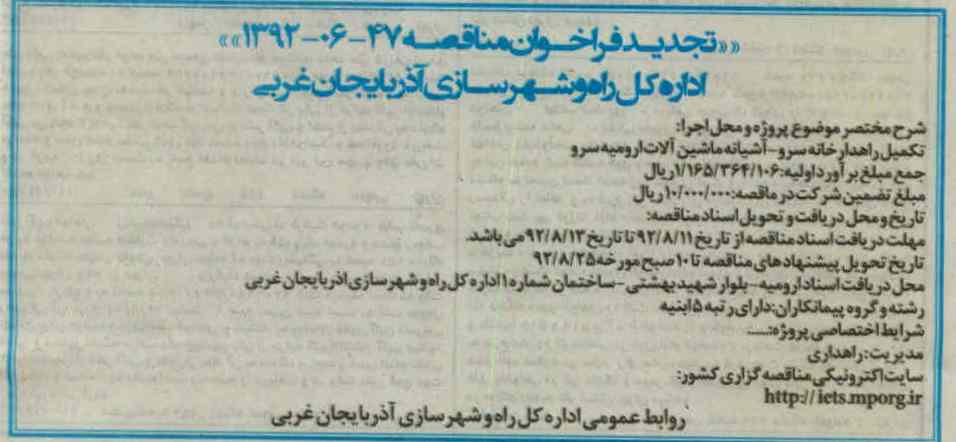 ««تجدیدفراخوان مناقصه ۴۷-۰۶-۱۳۹۲»»
اداره کل راه و شهرسازی آذربایجان غربی
شرح مختصر موضوع پروژه و محل اجرا:
تکمیل راهدارخانه سرو-آشیانه ماشین آلات ارومیه سرو
جمع مبلغ برآورد اولیه:۱/۱۶۵/۳۶۴/۱۰۶ریال
مبلغ تضمین شرکت در ماقصه:۱۰/۰۰۰/۰۰۰ریال
تاریخ و محل دریافت و تحویل اسناد مناقصه:
مهلت دریافت اسناد مناقصه از تاریخ ۹۲/۸/۱۱ تا تاریخ ۹۲/۸/۱۳می باشد.
تاریخ تحویل پیشنهادهای مناقصه تا ۱۰صبح مورخه ۹۲/۸/۲۵
محل دریافت اسناد ارومیه-بلوار شهید بهشتی-ساختمان شماره ۱اداره کل راه و شهرسازی اذربایجان غربی
رشته و گروه پیمانکاران:دارای رتبه ۵ابنیه
شرایط اختصاصی پروژه:....
مدیریت:راهداری
سایت اکترونیکی مناقصه گزاری کشور:
http://iets.mporg.ir
روابط عمومی اداره کل راه و شهرسازی آذربایجان غربی